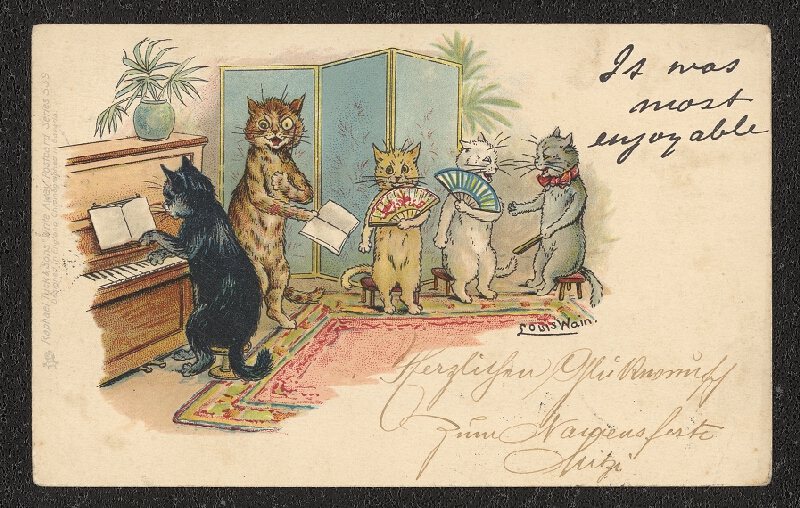 It was
most
enjoyable
Louis Wain.
Herzlichen Glückwunsch
zum Namensfeste
Mitzi
Raphael Tuck & Sons' "Write Away" Postcard Series 539